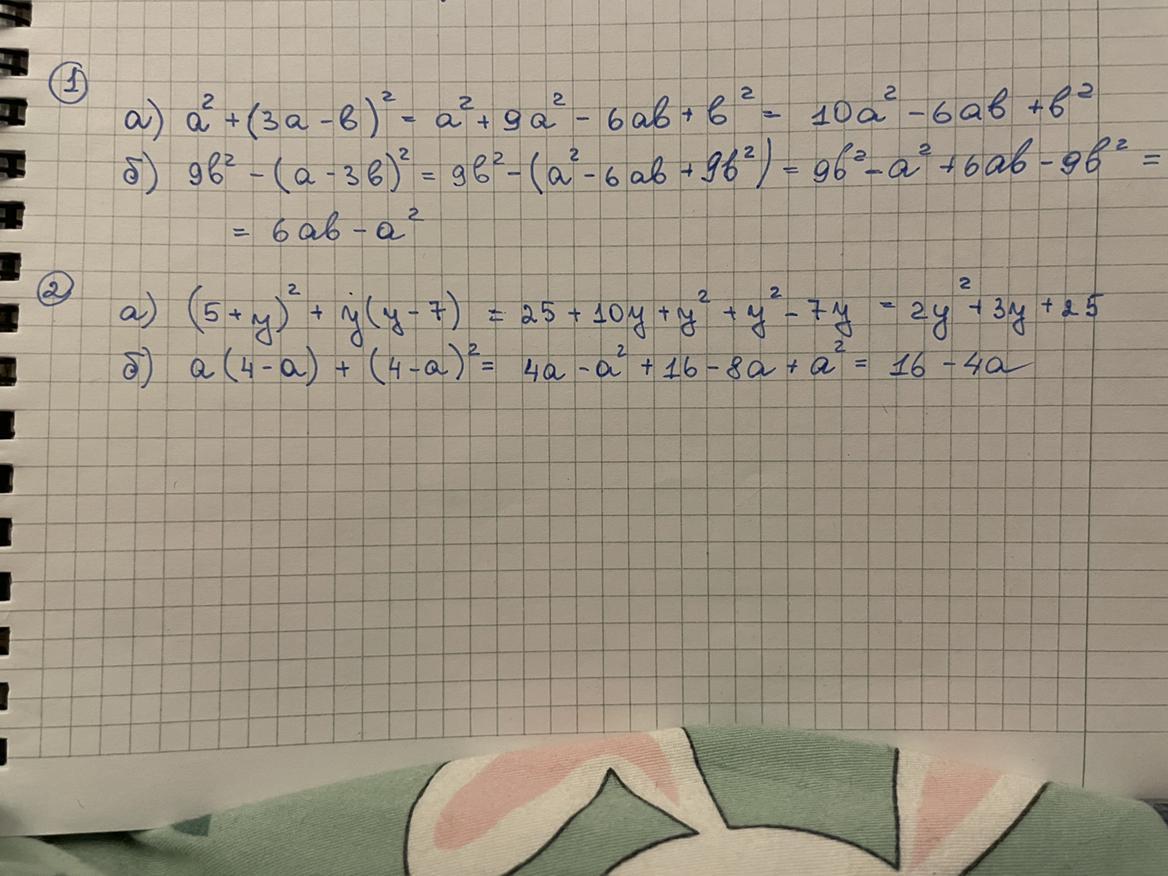 ①
а) a² + (3a - b)² = a² + 9a² - 6ab + b² = 10a² - 6ab + b²
б) 9b² - (a - 3b)² = 9b² - (a² - 6ab + 9b²) = 9b² - a² + 6ab - 9b² =
= 6ab - a²
②
а) (5 + y)² + y(y - 7) = 25 + 10y + y² + y² - 7y = 2y² + 3y + 25
б) a(4 - a) + (4 - a)² = 4a - a² + 16 - 8a + a² = 16 - 4a